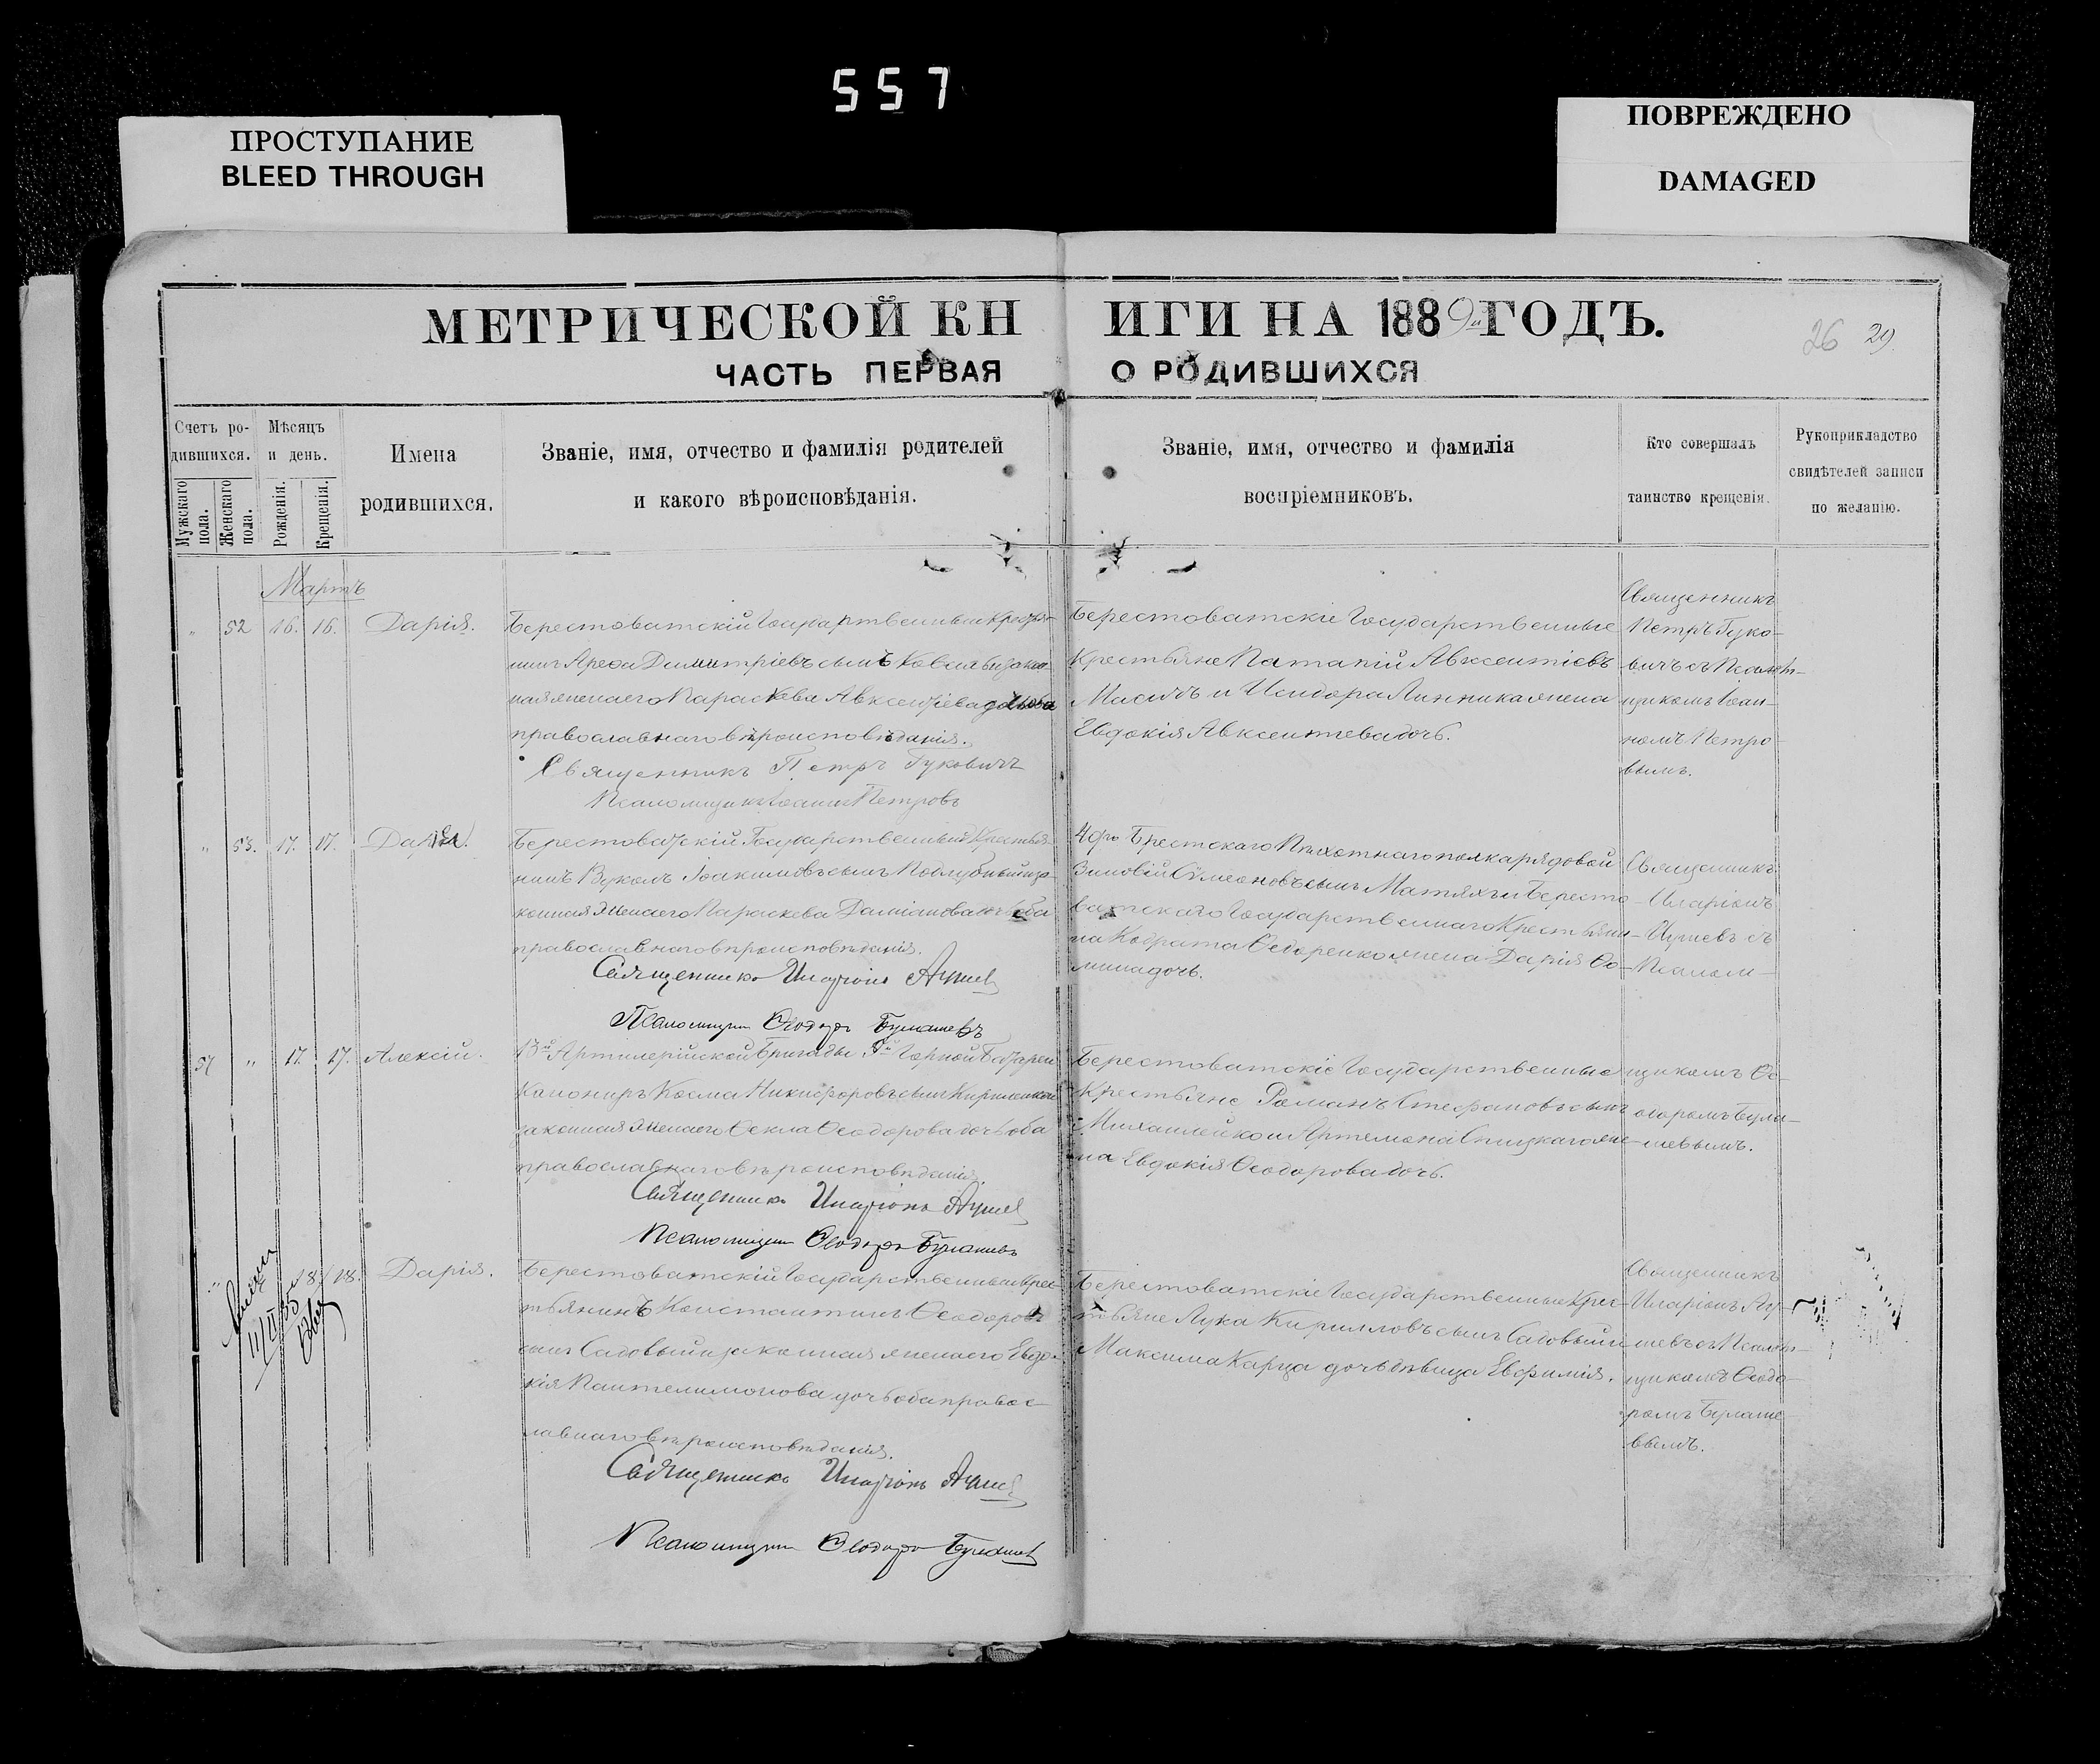 557
ПРОСТУПАНИЕ
BLEED THROUGH
ПОВРЕЖДЕНО
DAMAGED
МЕТРИЧЕСКОЙ КНИГИ НА 1889й ГОДЪ.
ЧАСТЬ ПЕРВАЯ О РОДИВШИХСЯ
26 29
Счетъ ро-
дившихся.
Мужскаго пола.
Женскаго пола.
Мѣсяцъ
и день.
Рожденія.
Крещенія.
Имена
родившихся.
Званіе, имя, отчество и фамилія родителей
и какого вѣроисповѣданія.
Званіе, имя, отчество и фамилія
воспріемниковъ.
Кто совершалъ
таинство крещенія.
Рукоприкладство
свидѣтелей записи
по желанію.
Мартъ
" 52 16. 16. Дарія.
Берестоватскій Государственный Крестья-
нинъ Арефа Димитріевъ сынъ
жена его Параскева Авксентіева дочь оба
православнаго вѣроисповѣданія.
Священникъ Петръ Гуковичъ
Псаломщикъ Іоаннъ Петровъ
Берестоватскіе Государственные
Крестьяне Патапій Авксентіевъ
и Исидора Линника жена
Евдокія Авксентіева дочь.
Священникъ
Петръ Гуко-
вичъ съ Псалом-
щикомъ Іоан-
номъ Петро
вымъ.
" 53. 17. 17. Дарія.
Берестоватскій Государственный Крестья-
нинъ Вуколъ Іоакимовъ сынъ Поддубный и за-
конная жена его Параскева Даміанова дочь оба
православнаго вѣроисповѣданія.
Священникъ Иларіонъ
Псаломщикъ Ѳеодоръ Булашевъ
Брестскаго Пѣхотнаго полка рядовой
Зиновій Сѵмеоновъ сынъ Матяхъ и Бересто
ватскаго Государственнаго Крестьяни-
на Кодрата Ѳедоренко жена Дарія Ѳо-
мина дочь.
Священникъ
Иларіонъ
съ
Псалом-
57 " 17. 17. Алексій.
13й Артилерійской Бригады Горной Батареи
Канониръ Косма Никифоровъ сынъ Кириленко и
законная жена его Ѳекла Ѳеодорова дочь оба
православнаго вѣроисповѣданія.
Священникъ Иларіонъ
Псаломщикъ Ѳеодоръ Булашевъ
Берестоватскіе Государственные
Крестьяне Романъ Стефановъ сынъ
Михаилейко и Артемона Спицкаго же-
на Евдокія Ѳеодорова дочь.
щикомъ Ѳе-
одоромъ Була-
шевымъ.
" 18. 18. Дарія.
Берестоватскій Государственный Крес-
тьянинъ Константинъ Ѳеодоровъ
сынъ Садовый и законная жена его Евдо-
кія Пантелимонова дочь оба правос-
лавнаго вѣроисповѣданія.
Священникъ Иларіонъ
Псаломщикъ Ѳеодоръ Булашевъ
Берестоватскіе Государственные Крес-
тьяне Лука Кирилловъ сынъ Садовый и
Максима Карпа дочь дѣвица Евфимія.
Священникъ
Иларіонъ
шевъ съ Псалом-
щикомъ Ѳеодо-
ромъ Булаше-
вымъ.